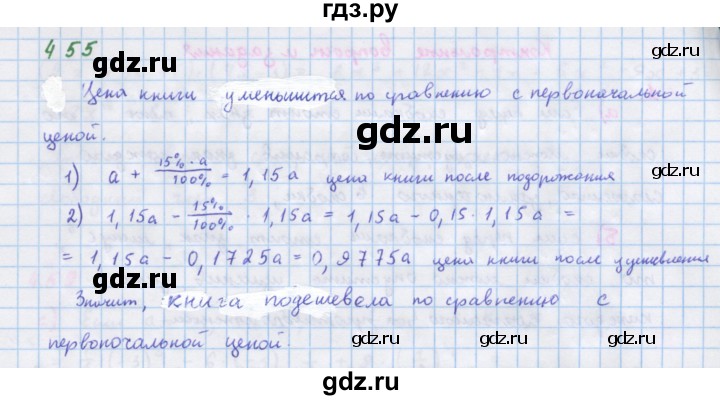 гдз.ру
455
gdz.ru gdz.ru gdz.ru
Цена книги уменьшится по сравнению с первоначальной
gdz.ru
ценой.
1) a + 15%·a/100% = 1,15a цена книги после подорожания
gdz.ru gdz.ru
2) 1,15a - 15%/100% · 1,15a = 1,15a - 0,15·1,15a =
= 1,15a - 0,1725a = 0,9775a цена книги после удешевления
gdz.ru
Значит, книга подешевела по сравнению с
первоночальной ценой.
gdz.ru gdz.ru
gdz.ru